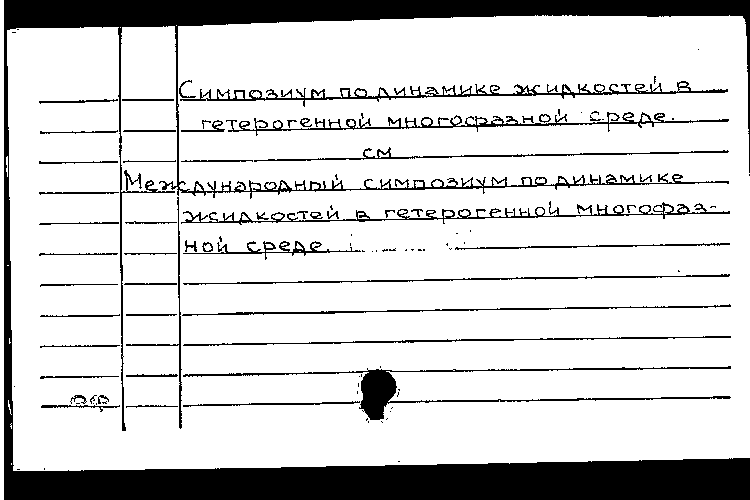 Симпозиум по динамике жидкостей в
гетерогенной многофазной среде.
см
Международный симпозиум по динамике
жидкостей в гетерогенной многофаз-
ной среде.